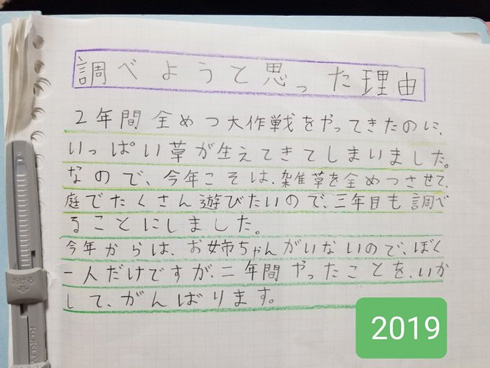 調べようと思った理由
2年間全めつ大作戦をやってきたのに、
いっぱい草が生えてきてしまいました。
なので、今年こそは、雑草を全めつさせて、
庭でたくさん遊びたいので、三年目も調べ
ることにしました。
今年からは、お姉ちゃんがいないので、ぼく
一人だけですが、二年間やったことを、いか
して、がんばります。
2019